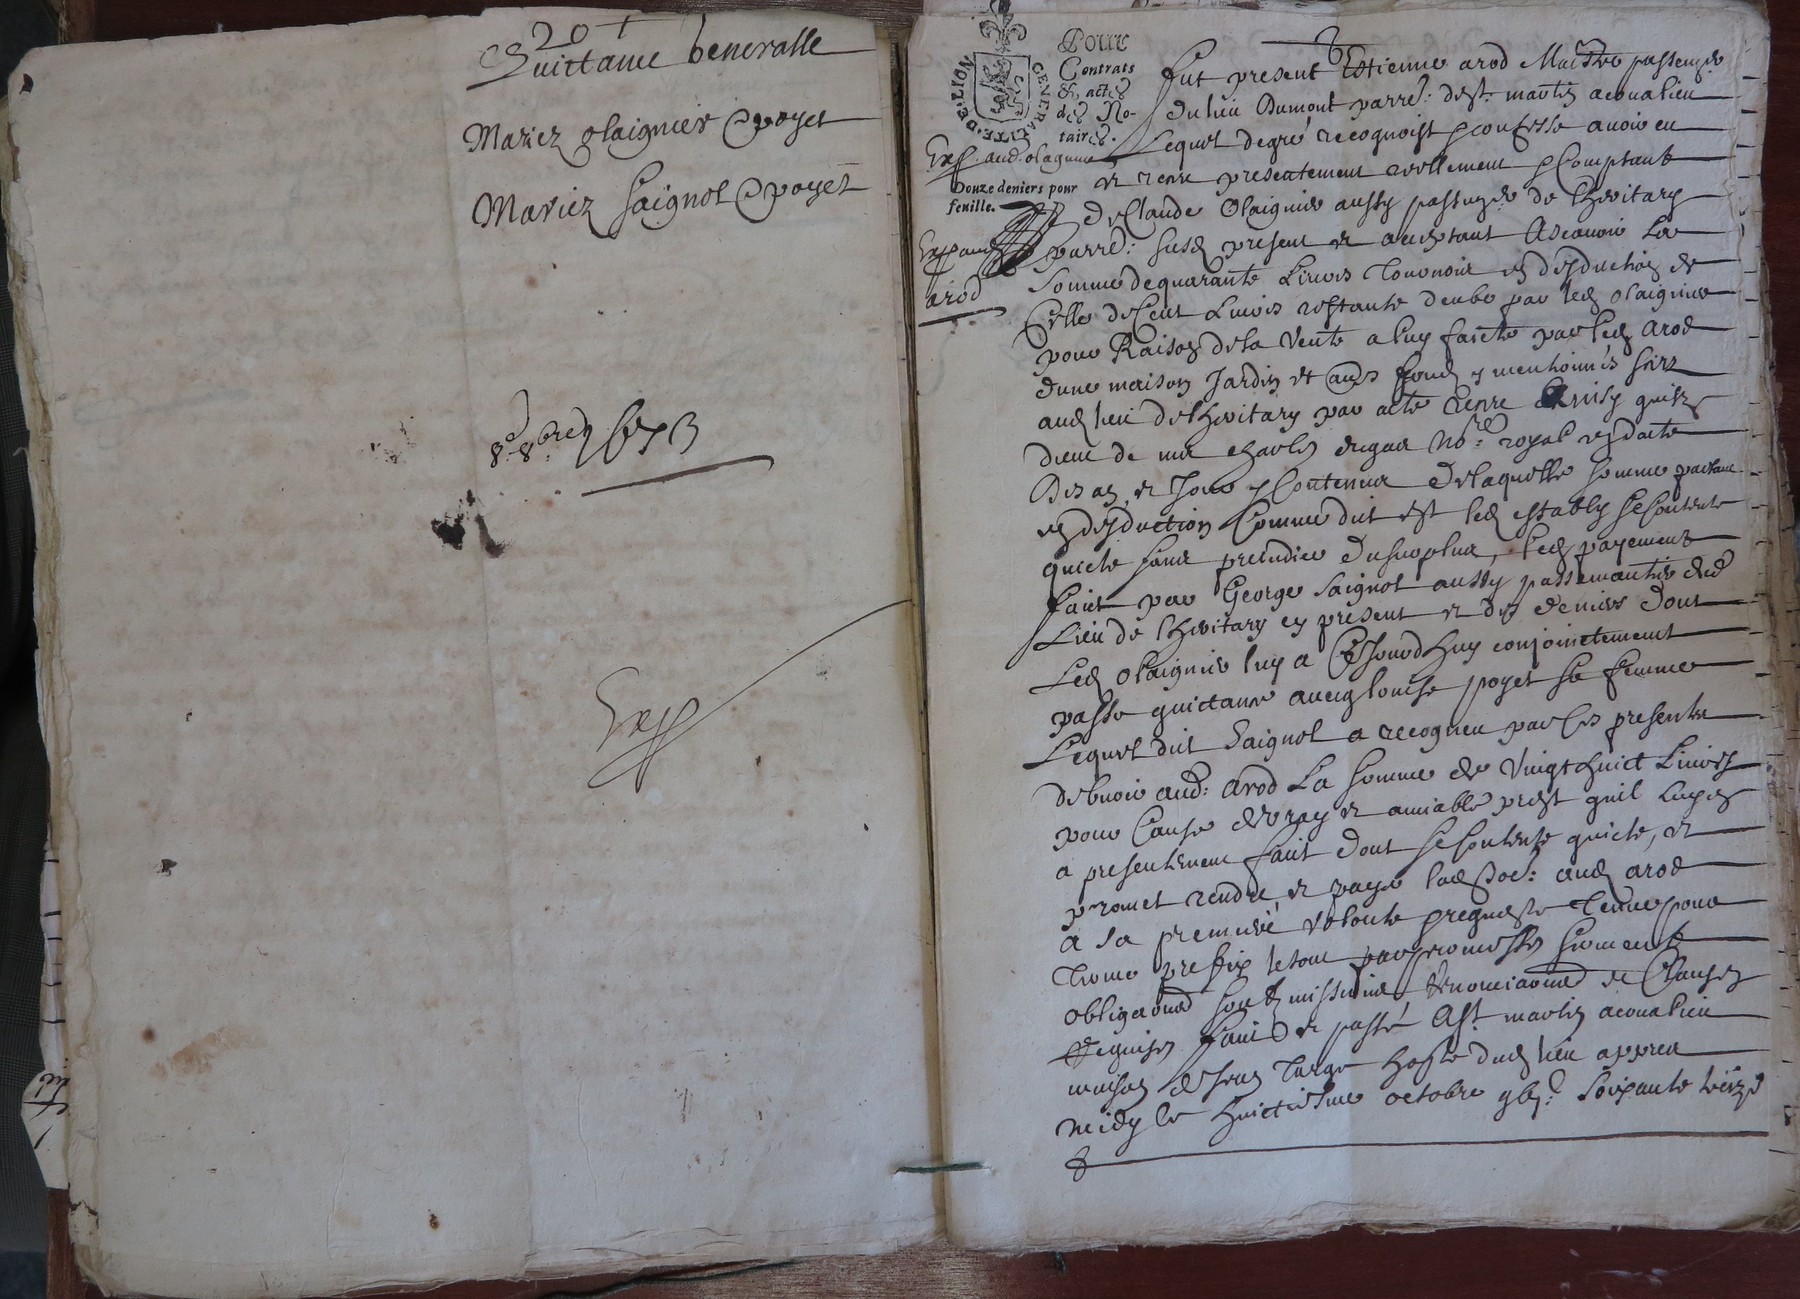 20
Quictance generalle
Mariez olaignier & poyet
Mariez Saignol & poyet
8e 8bre 1673
Exp
GENERALITE DE LION
Pour
Contrats
& actes
des No-
taires.
Douze deniers pour
feuille.
Exp. aud. olagnier
Exp aud
arod
fut present Estienne arod Maistre passem.
du lieu Dumont parre: de St. martin acoualieu
Lequel de gré recognoist & confesse auoir eu
et receu presentement reellement & Comptant
de Claude Olaignier aussy passem. de lheritary
parre: susd present et acceptant Ascauoir La
Somme de quarante Liures Tournois en desduction de
Celle de Cent Liures restante deube par led olaignier
pour Raison de la Vente a luy faicte par led Arod
dune maison Jardin et fonds y mentionnés sciz
aud lieu de lheritary par acte receu
de me charles no.re royal
et Jour y Contenus De laquelle somme
en desduction Comme dit est led estably se Contente
quicte sans preiudice du surplus, led payement
faict par George Saignol aussy passemantier dud
Lieu de lheritary cy present et des deniers dont
Led Olaignier luy a CeJourdhuy conjoinctement
passé quictance auec louise poyet sa femme
Lequel dit Saignol a recogneu par Ces presentes
debuoir aud: arod La somme de Vingt huict Liures
pour Cause de vray et amiable prest quil luy en
a presentement faict dont se Contente quicte, et
promet rendre et payer lad Som: aud arod
a sa premiere volonté & requeste
prefix le tout par promesses serment
obligaons soubmissions Renonciaons et Clauses
requises faict et passé a St. martin acoualieu
maison de Jean hoste dud lieu appres
midy le huictiesme octobre Soixante treize